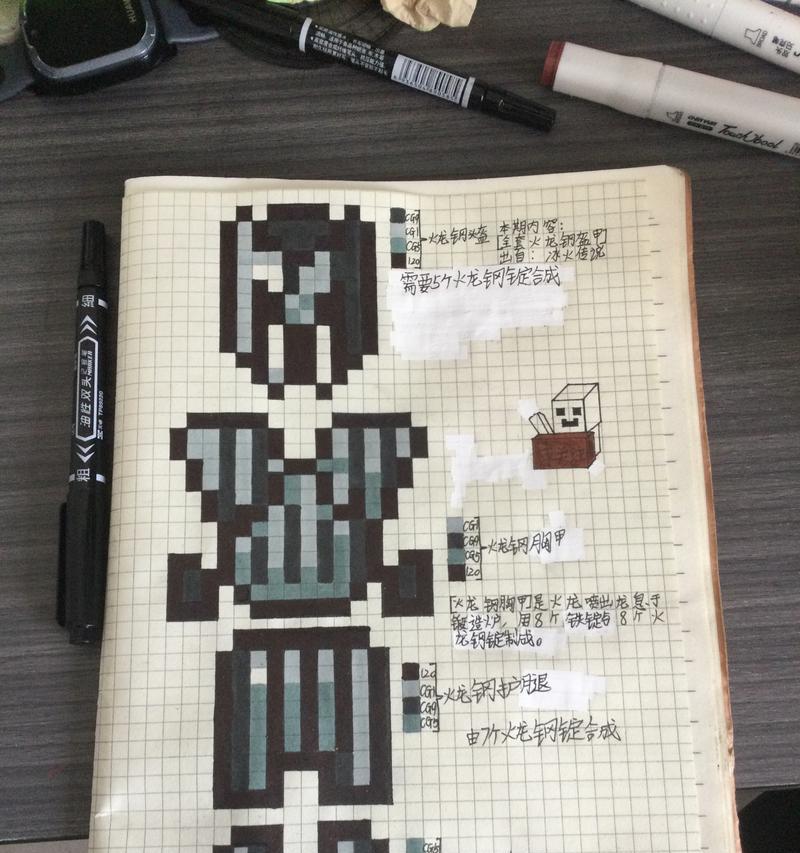 HUAWEI
TouchCool
细
油性双头
记号笔
MARKER
粗
CG9
CG1
CG5
120
火龙钢头盔
本期内容:
[全套火龙钢盔甲]
出自:冰火传说
需要5个火龙钢锭合成
CG1
CG9
CG5
120
火龙钢胸甲
[火龙钢胸甲]是火龙喷出龙息于
锻造炉,用8个铁锭与8个火
龙钢锭制成。
120
CG1
CG9
CG5
火龙钢护腿
由7个火龙钢锭合成
CG5